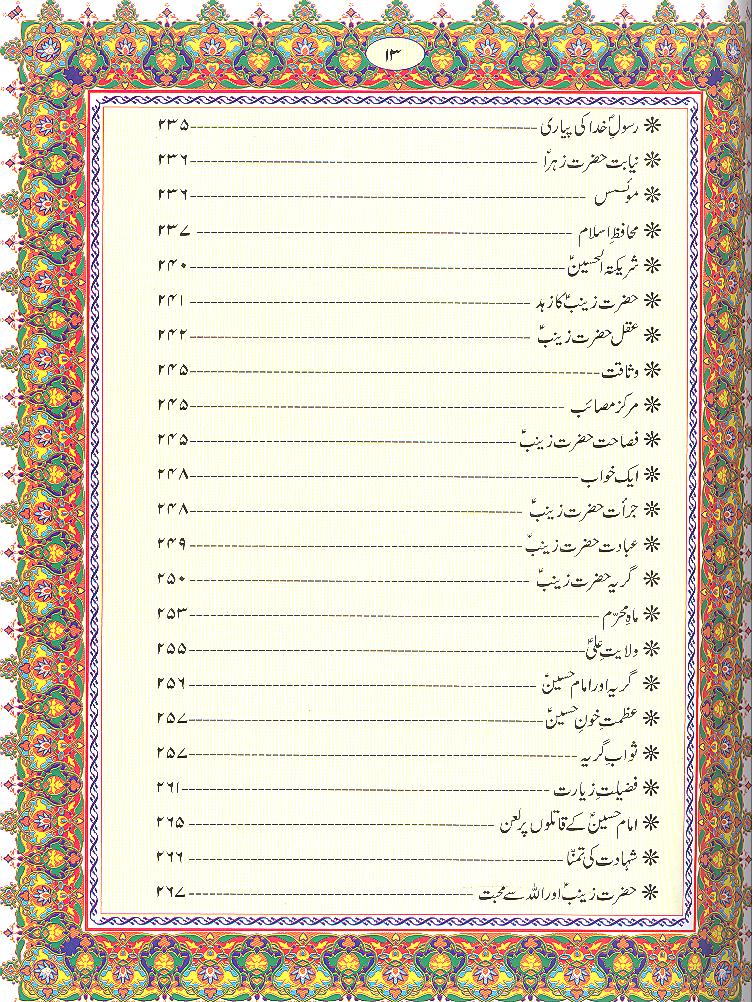 ۱۳
❋ رسولِؐ خدا کی پیاری ۲۳۵
❋ نیابت حضرت زہراؑ ۲۳۶
❋ موئسس ۲۳۶
❋ محافظِ اسلام ۲۳۷
❋ شریکتہ الحسینؑ ۲۴۰
❋ حضرت زینبؑ کا زہد ۲۴۱
❋ عقل حضرت زینبؑ ۲۴۲
❋ وثاقت ۲۴۵
❋ مرکز مصائب ۲۴۵
❋ فصاحت حضرت زینبؑ ۲۴۵
❋ ایک خواب ۲۴۸
❋ جرأت حضرت زینبؑ ۲۴۸
❋ عبادت حضرت زینبؑ ۲۴۹
❋ گریہ حضرت زینبؑ ۲۵۰
❋ ماہِ محرّم ۲۵۳
❋ ولایتِ علیؑ ۲۵۵
❋ گریہ اور امام حسینؑ ۲۵۶
❋ عظمتِ خونِ حسینؑ ۲۵۷
❋ ثوابِ گریہ ۲۵۷
❋ فضیلتِ زیارت ۲۶۱
❋ امام حسینؑ کے قاتلوں پر لعن ۲۶۵
❋ شہادت کی تمنّا ۲۶۶
❋ حضرت زینبؑ اور اللہ سے محبت ۲۶۷